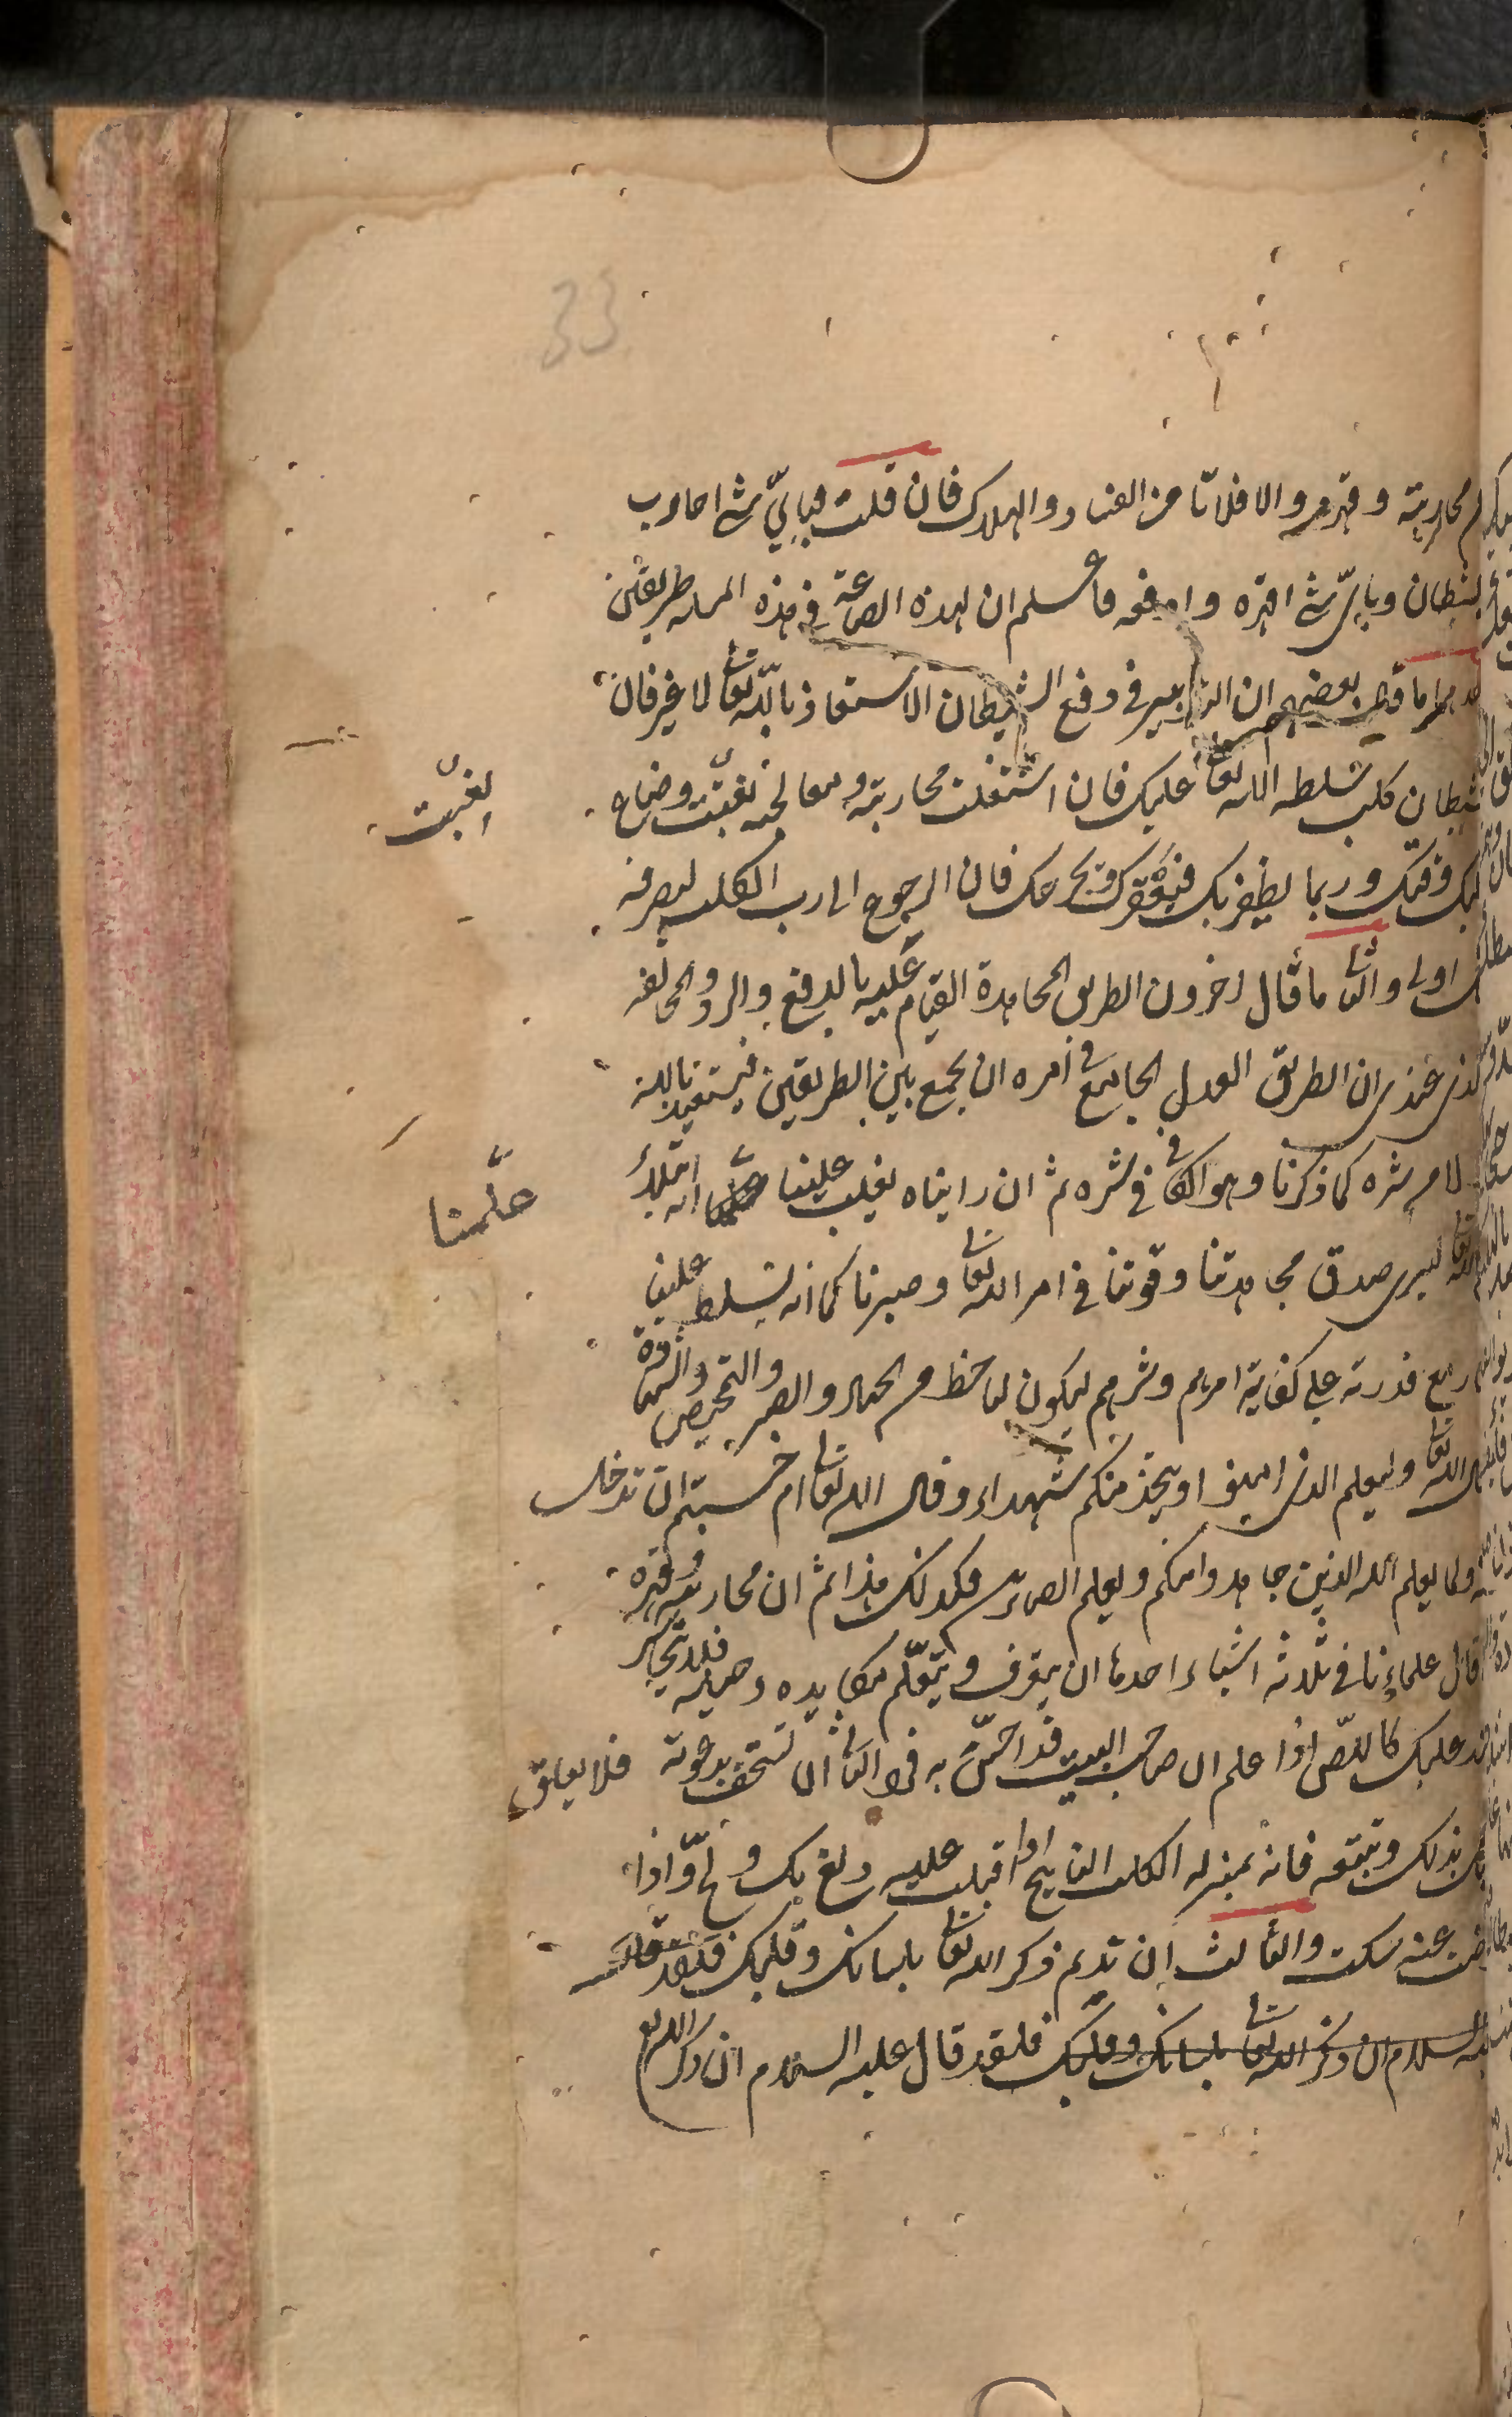 33
محاربته وقهره والا فلا تامن الفساد والهلاك فان قلت فبايّ شئ احارب
الشيطان وبايّ شئ اقهره وادفعه فاعلم ان لهذه الصناعة في هذه المسله طريقين
احدهما ما قال بعضهم ان التدبير في دفع الشيطان الاستعاذ بالله تعا لا غير فان
الشيطان كلب سلطه الله تعا عليك فان اشتغلت محاربته ومعالجته تعبّت وضاع
عليك وقتك وربما يظفر بك فيعقرك ويجرحك فان الرجوع الى رب الكلب ليصرفه
اولى والثا ما قال اخرون الطريق المجاهدة القيام عليه بالدفع والرد والمخالفه
عندى ان الطريق العدل الجامع في امره ان يجمع بين الطريقين فيستعيذ بالله
شره كما ذكرنا وهو الكا في في شره ثم ان رايناه يغلب علينا علمنا انه ابتلاء
ليرى صدق مجاهدتنا وقوتنا في امر الله تعا وصبرنا كما انه يسلط علينا
مع قدرته على كفاية امرهم وشرهم ليكون لنا حظ من الجهاد والصبر والتمحيص والشهادة
الله تعا وليعلم الذين امنوا ويتخذ منكم شهداء وقال الله تعا ام حسبتم ان تدخلو
ولما يعلم الله الذين جاهدوا منكم ويعلم الصابرين فكذلك هذا ثم ان محاربته وقهره
قال علماءنا في ثلاثة اشياء احدها ان يتعرف ويتعلّم مكايده وحيله فلا يتجاسر
عليك كاللصّ اذا علم ان صاحب البيت قد احسّ به فر والثا ان تستخف بدعوته فلا يعلق
بذلك وتتبعه فانه بمنزله الكلب النابح اذا اقبلت عليه ولغ بك ولجّ واذا
عنه سكت والثالث ان تديم ذكر الله تعا بلسانك وقلبك فلقد قال
السلام ان ذكر الله تعا بلسانك وقلبك فلقد قال عليه السلام ان ذكر الله تع
تعبّت
علّمنا